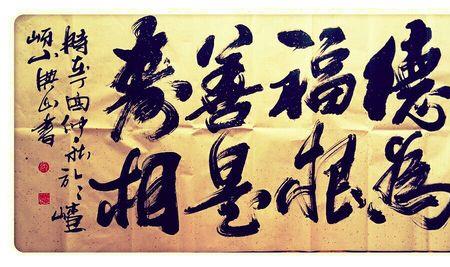 德為
福根
善是
壽相
時在丁酉仲秋於嵖
岈山洪山書